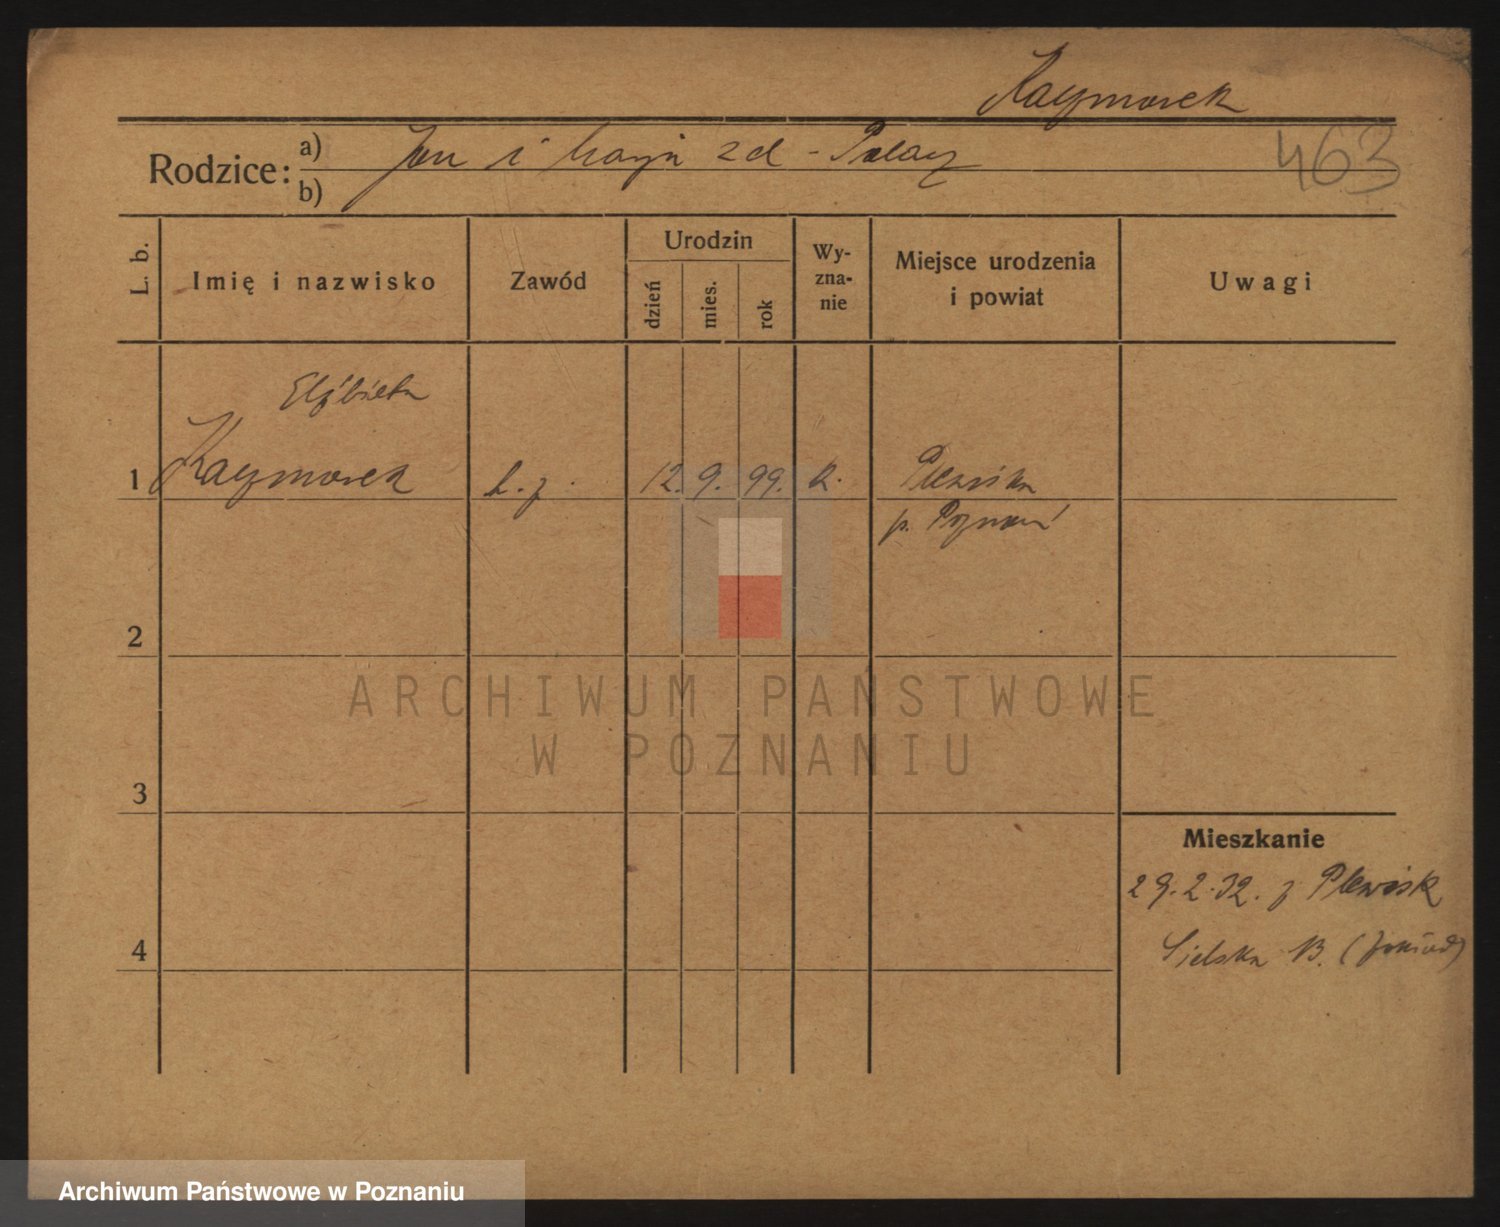 Kaczmarek
463
Rodzice: a) Jan i Marja zd - Palacz
b)
L. b. Imię i nazwisko Zawód Urodzin dzień mies. rok Wy-zna-nie Miejsce urodzenia i powiat Uwagi
Elżbieta
1 Kaczmarek b. z. 12. 9. 99. k. Plewiska
p. Poznań
2
3
4
Mieszkanie
29.2.32. z Plewisk
Sielska 13.
ARCHIWUM PAŃSTWOWE
W POZNANIU
Archiwum Państwowe w Poznaniu